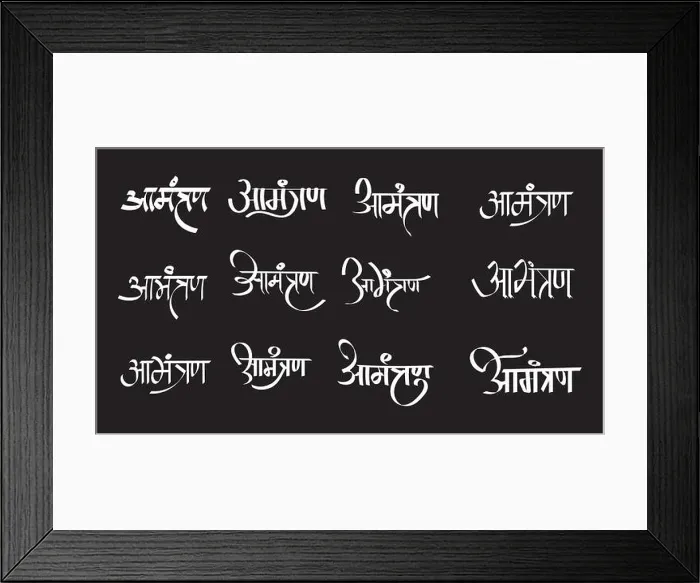 आमंत्रण आमंत्रण आमंत्रण आमंत्रण
आमंत्रण आमंत्रण आमंत्रण आमंत्रण
आमंत्रण आमंत्रण आमंत्रण आमंत्रण